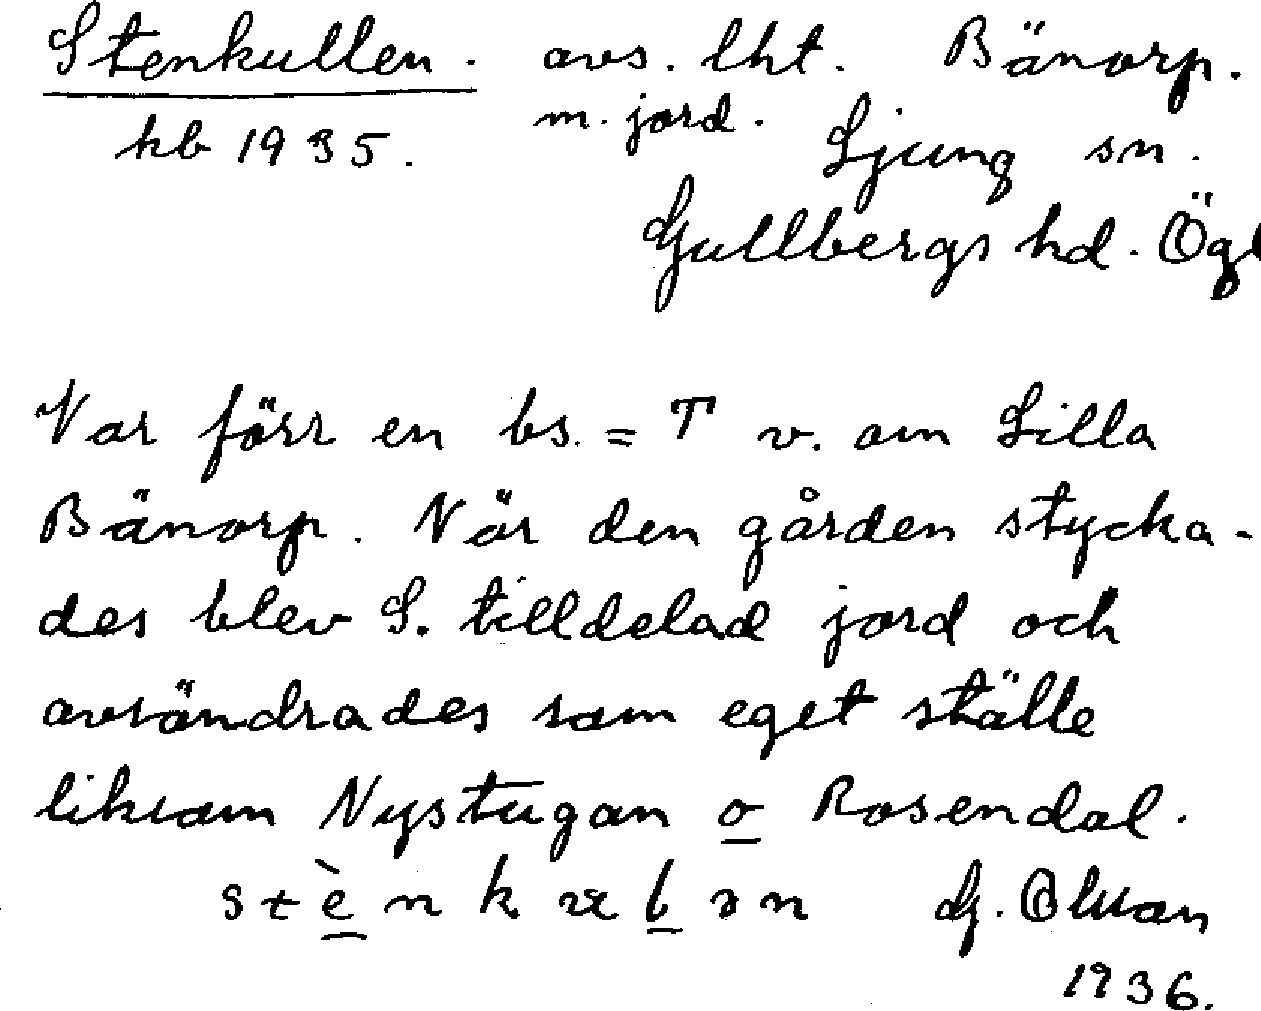 Stenkullen. avs. lht. Bänorp.
kb 1935. m. jord. Ljung sn.
Gullbergs hd. Ögl
Var förr en bs. = T v. om Lilla
Bänorp. När den gården stycka-
des blev S. tilldelad jord och
avsöndrades som eget ställe
liksom Nystugan o Rosendal.
1936.